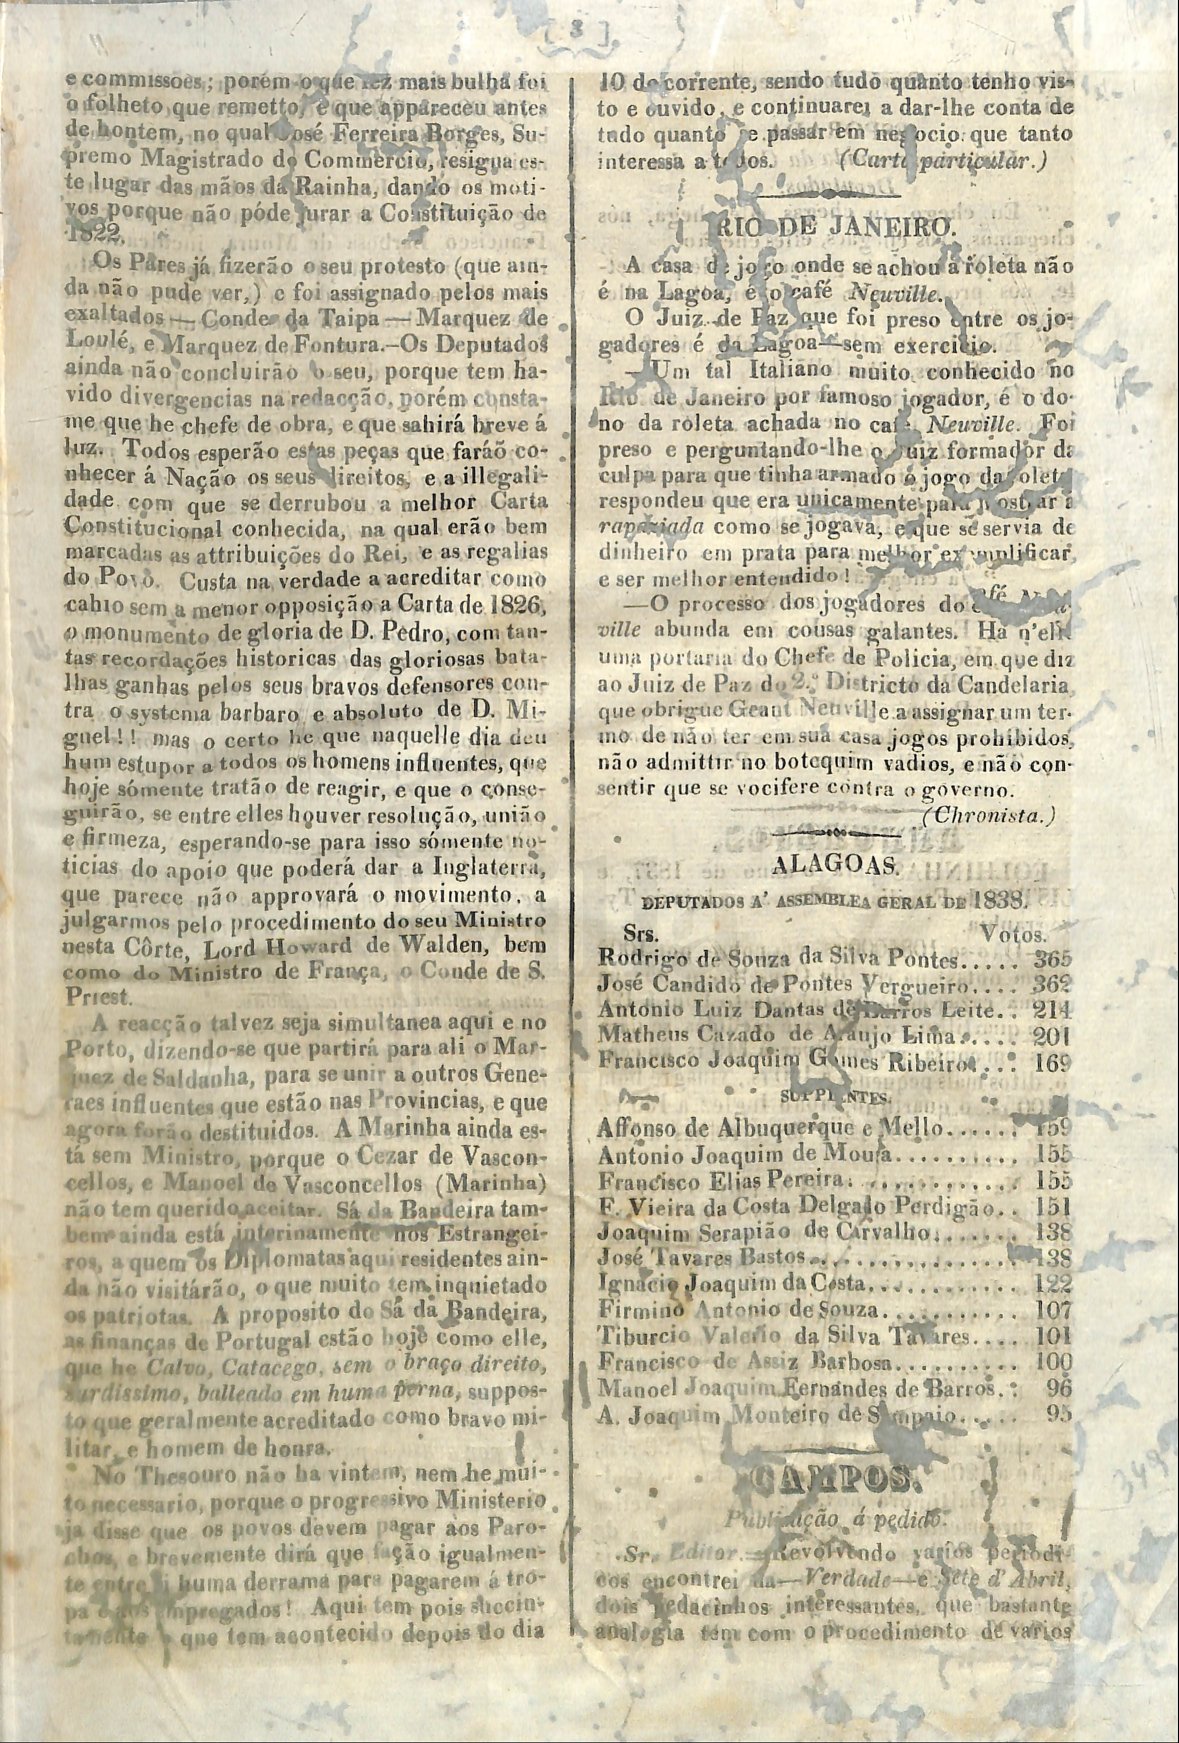 [ 3 ]
e commissões; porém o que fez mais bulha foi
o folheto que remetto, e que appareceu antes
de hontem, no qual José Ferreira Borges, Su-
premo Magistrado do Commercio, resigna es-
te lugar das mãos da Rainha, dando os moti-
vos porque não póde jurar a Constituição de
1822.
Os Pares já fizerão o seu protesto (que ain-
da não pude ver,) e foi assignado pelos mais
exaltados — Conde da Taipa — Marquez de
Loulé, e Marquez de Fontura.—Os Deputados
ainda não concluirão o seu, porque tem ha-
vido divergencias na redacção, porém consta-
me que he chefe de obra, e que sahirá breve á
luz. Todos esperão estas peças que farão co-
nhecer á Nação os seus direitos, e a illegali-
dade com que se derrubou a melhor Carta
Constitucional conhecida, na qual erão bem
marcadas as attribuições do Rei, e as regalias
do Povo. Custa na verdade a acreditar como
cahio sem a menor opposição a Carta de 1826,
o monumento de gloria de D. Pedro, com tan-
tas recordações historicas das gloriosas bata-
lhas ganhas pelos seus bravos defensores con-
tra o systema barbaro e absoluto de D. Mi-
guel!! mas o certo he que naquelle dia deu
hum estupor a todos os homens influentes, que
hoje sómente tratão de reagir, e que o conse-
guirão, se entre elles houver resolução, união
e firmeza, esperando-se para isso sómente no-
ticias do apoio que poderá dar a Inglaterra,
que parece não approvará o movimento, a
julgarmos pelo procedimento do seu Ministro
nesta Côrte, Lord Howard de Walden, bem
como do Ministro de França, o Conde de S.
Priest.
A reacção talvez seja simultanea aqui e no
Porto, dizendo-se que partirá para ali o Mar-
quez de Saldanha, para se unir a outros Gene-
raes influentes que estão nas Provincias, e que
agora forão destituidos. A Marinha ainda es-
tá sem Ministro, porque o Cezar de Vascon-
cellos, e Manoel de Vasconcellos (Marinha)
não tem querido aceitar. Sá da Bandeira tam-
bem ainda está interinamente nos Estrangei-
ros, a quem os Diplomatas aqui residentes ain-
da não visitárão, o que muito tem inquietado
os patriotas. A proposito do Sá da Bandeira,
as finanças de Portugal estão hoje como elle,
que he Calvo, Catacego, sem o braço direito,
surdissimo, balleado em huma perna, suppos-
to que geralmente acreditado como bravo mi-
litar, e homem de honra.
No Thesouro não ha vintem, nem he mui-
to necessario, porque o progressivo Ministerio
já disse que os povos devem pagar aos Paro-
chos, e brevemente dirá que fação igualmen-
te entre si huma derrama para pagarem á tro-
pa e aos empregados! Aqui tem pois succin-
tamente o que tem acontecido depois do dia
10 do corrente, sendo tudo quanto tenho vis-
to e ouvido, e continuarei a dar-lhe conta de
tudo quanto se passar em negocio que tanto
interessa a todos. (Carta particular.)
RIO DE JANEIRO.
A casa de jogo onde se achou a roleta não
é na Lagoa, é o café Neuville.
O Juiz de Paz que foi preso entre os jo-
gadores é da Lagoa—sem exercicio.
—Um tal Italiano muito conhecido no
Rio de Janeiro por famoso jogador, é o do-
no da roleta achada no café Neuville. Foi
preso e perguntando-lhe o Juiz formador da
culpa para que tinha armado o jogo da roleta
respondeu que era unicamente para mostrar á
rapaziada como se jogava, e que se servia de
dinheiro em prata para melhor exemplificar,
e ser melhor entendido!
—O processo dos jogadores do café Neu-
ville abunda em cousas galantes. Ha n'elle
uma portaria do Chefe de Policia, em que diz
ao Juiz de Paz do 2.º Districto da Candelaria,
que obrigue Geant Neuville a assignar um ter-
mo de não ter em sua casa jogos prohibidos,
não admittir no botequim vadios, e não con-
sentir que se vocifere contra o governo.
(Chronista.)
ALAGOAS.
DEPUTADOS A' ASSEMBLEA GERAL DE 1838.
Srs. Votos.
Rodrigo de Souza da Silva Pontes..... 365
José Candido de Pontes Vergueiro.... 362
Antonio Luiz Dantas de Barros Leite.. 214
Matheus Cazado de Araujo Lima..... 201
Francisco Joaquim Gomes Ribeiro.... 169
SUPPLENTES.
Affonso de Albuquerque e Mello...... 159
Antonio Joaquim de Moura.......... 155
Francisco Elias Pereira............. 155
F. Vieira da Costa Delgado Perdigão.. 151
Joaquim Serapião de Carvalho....... 138
José Tavares Bastos................ 138
Ignacio Joaquim da Costa........... 122
Firmino Antonio de Souza.......... 107
Tiburcio Valerio da Silva Tavares.... 101
Francisco de Assiz Barbosa.......... 100
Manoel Joaquim Fernandes de Barros.. 96
A. Joaquim Monteiro de Sampaio..... 95
CAMPOS.
Publicação á pedido.
Sr. Editor.—Revolvendo varios periodi-
cos encontrei na—Verdade—e Sete d'Abril,
dois pedacinhos interessantes, que bastante
analogia tem com o procedimento de varios
349